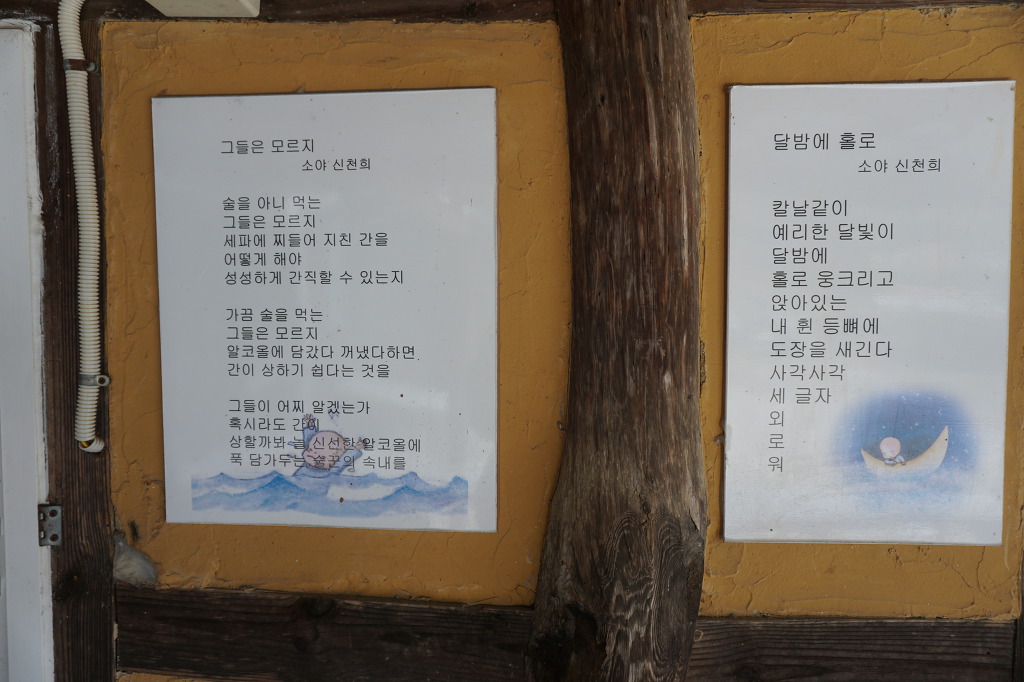 그들은 모르지
소야 신천희
술을 아니 먹는
그들은 모르지
세파에 찌들어 지친 간을
어떻게 해야
성성하게 간직할 수 있는지
가끔 술을 먹는
그들은 모르지
알코올에 담갔다 꺼냈다하면
간이 상하기 쉽다는 것을
그들이 어찌 알겠는가
혹시라도 간이
상할까봐 늘 신선한 알코올에
푹 담가두는 술꾼의 속내를
달밤에 홀로
소야 신천희
칼날같이
예리한 달빛이
달밤에
홀로 웅크리고
앉아있는
내 휜 등뼈에
도장을 새긴다
사각사각
세 글자
외
로
워